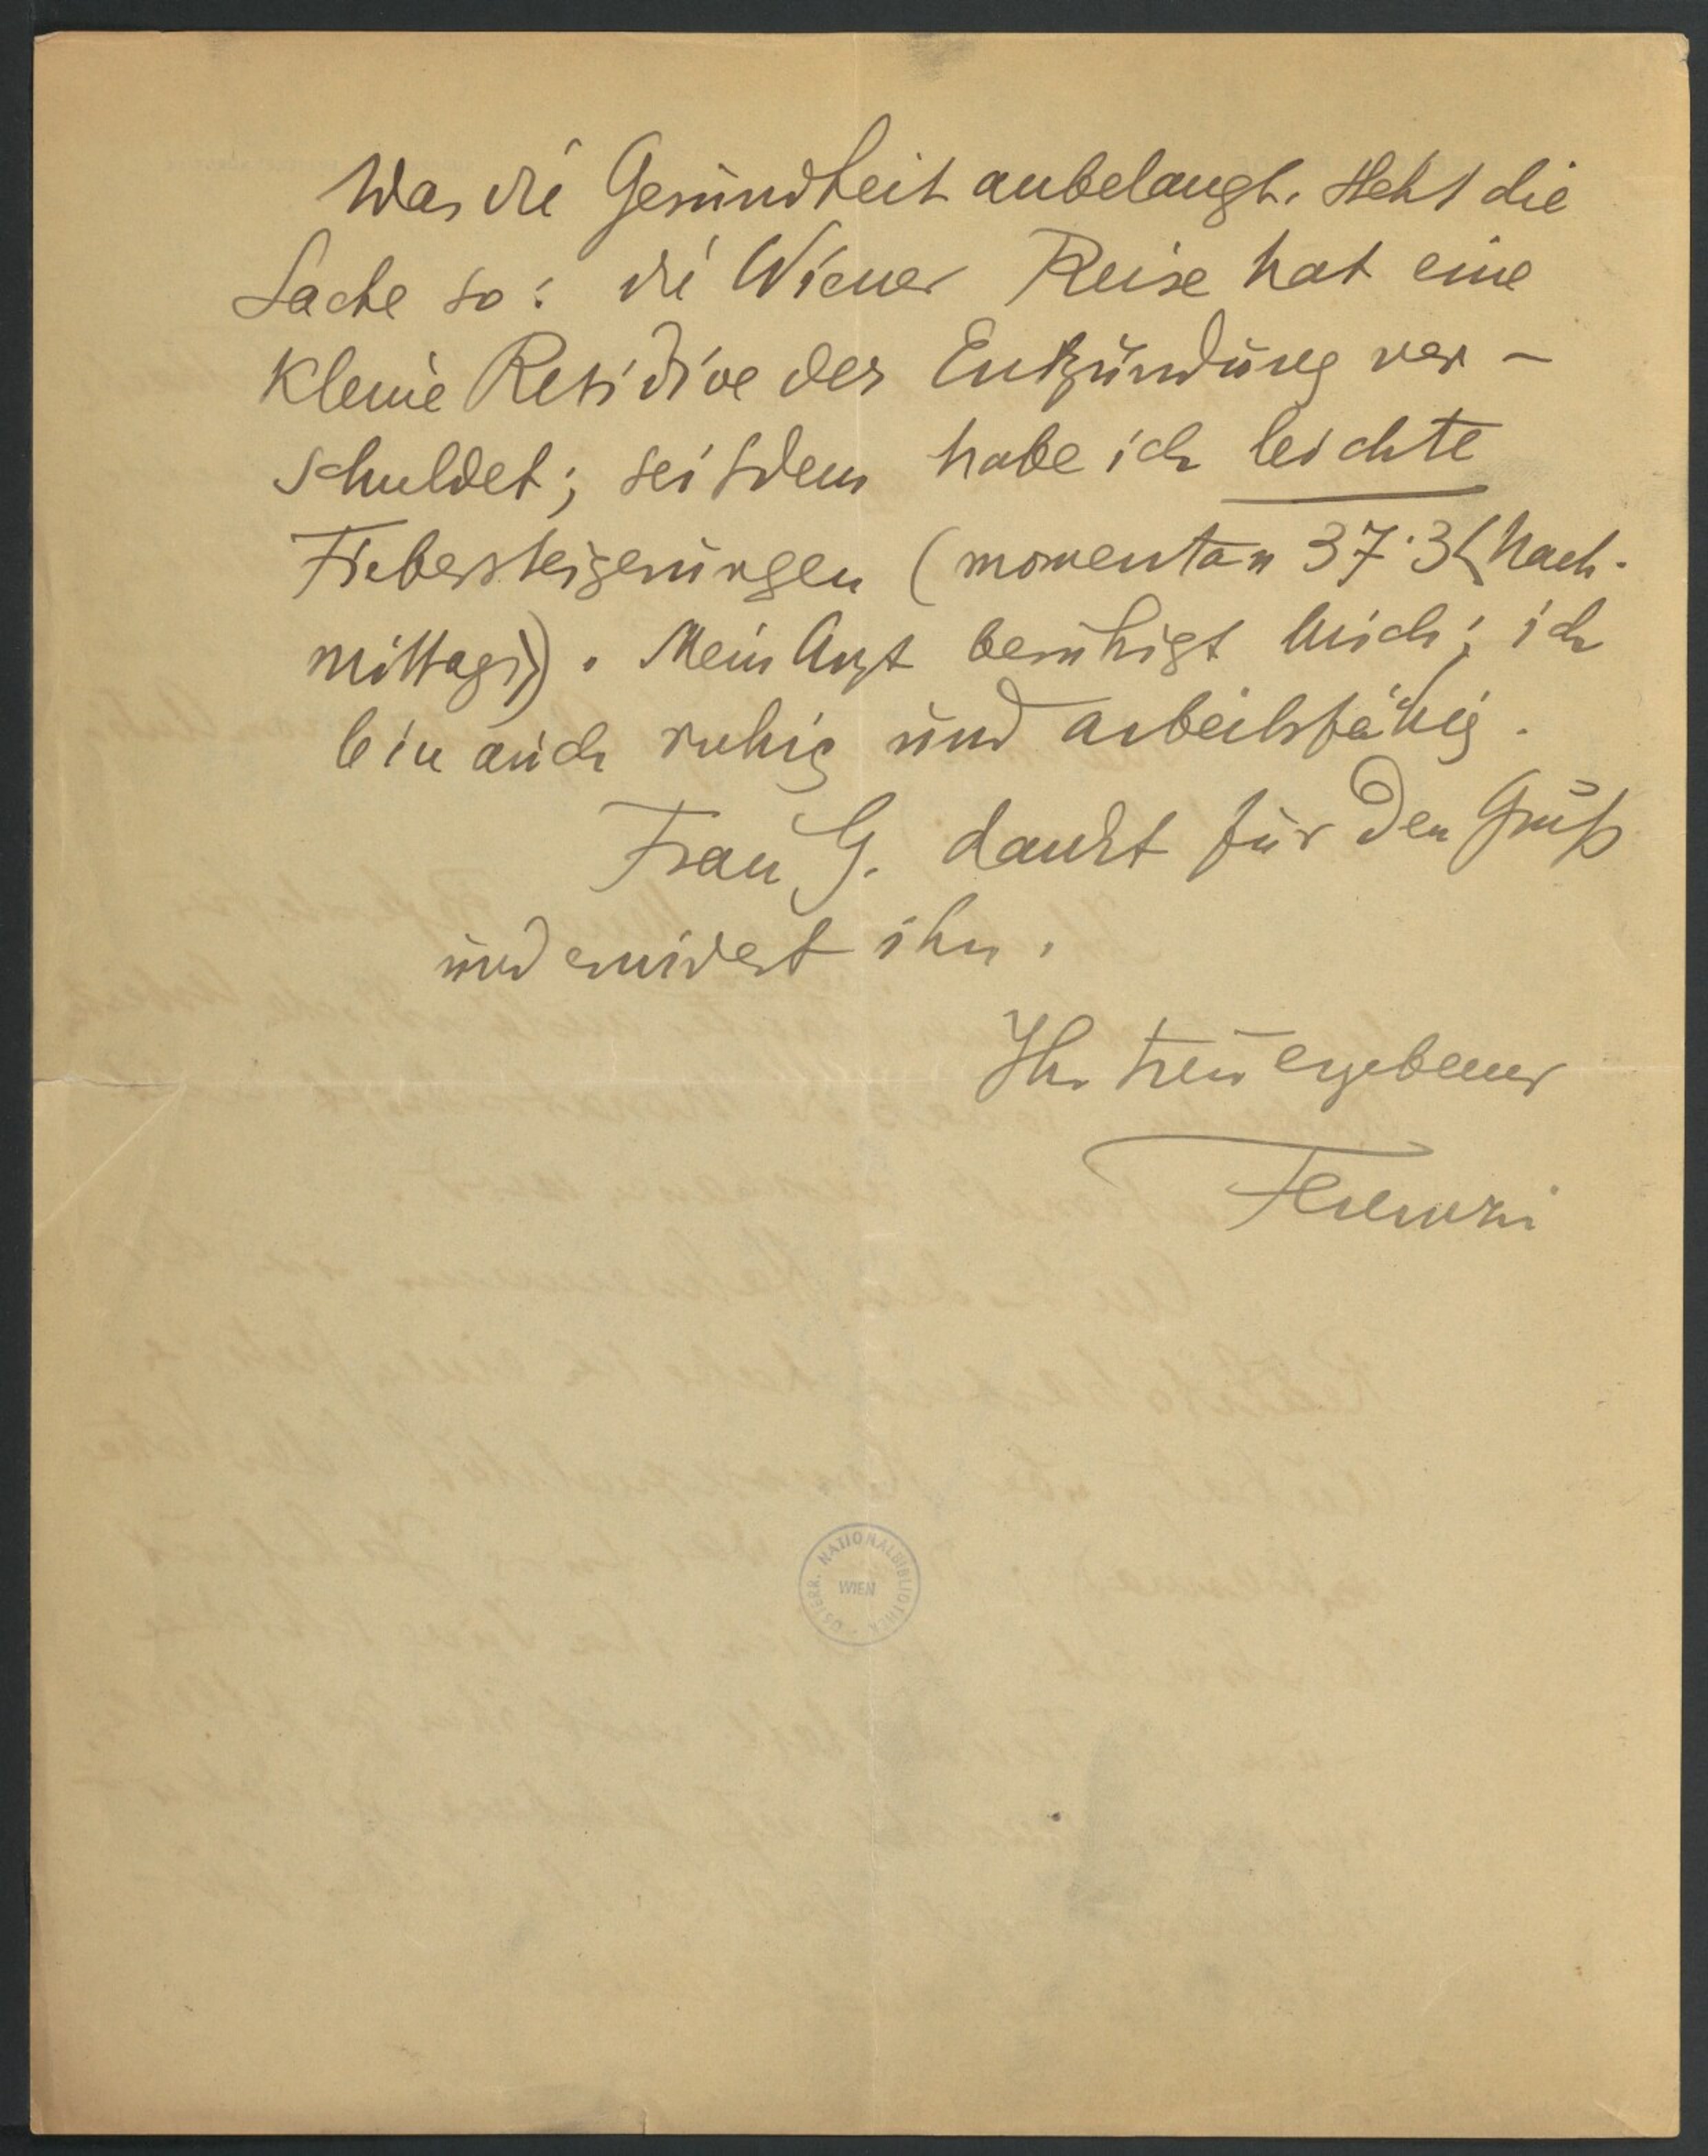 Was die Gesundheit anbelangt, steht die
Sache so: die Wiener Reise hat eine
kleine Residive der Entzündung ver-
schuldet; seitdem habe ich leichte
Fiebersteigerungen (momentan 37·3 (Nach-
mittags)). Mein Arzt beruhigt mich; ich
bin auch ruhig und arbeitsfähig.
Frau G. dankt für den Gruß
und erwidert ihn.
Ihr treu ergebener
Ferenczi
ÖSTERR. NATIONALBIBLIOTHEK
WIEN